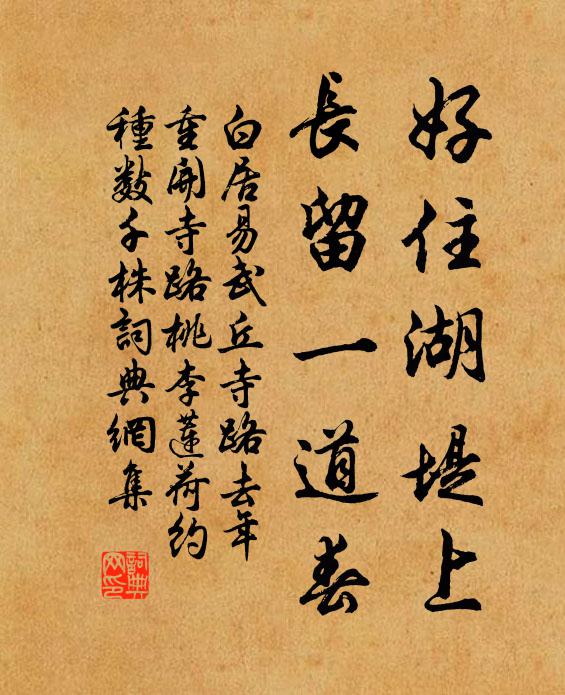 好住湖堤上
長留一道春
白居易武丘寺路去年
重開寺路桃李蓮荷約
種数千株詞典網集
詞典
网印